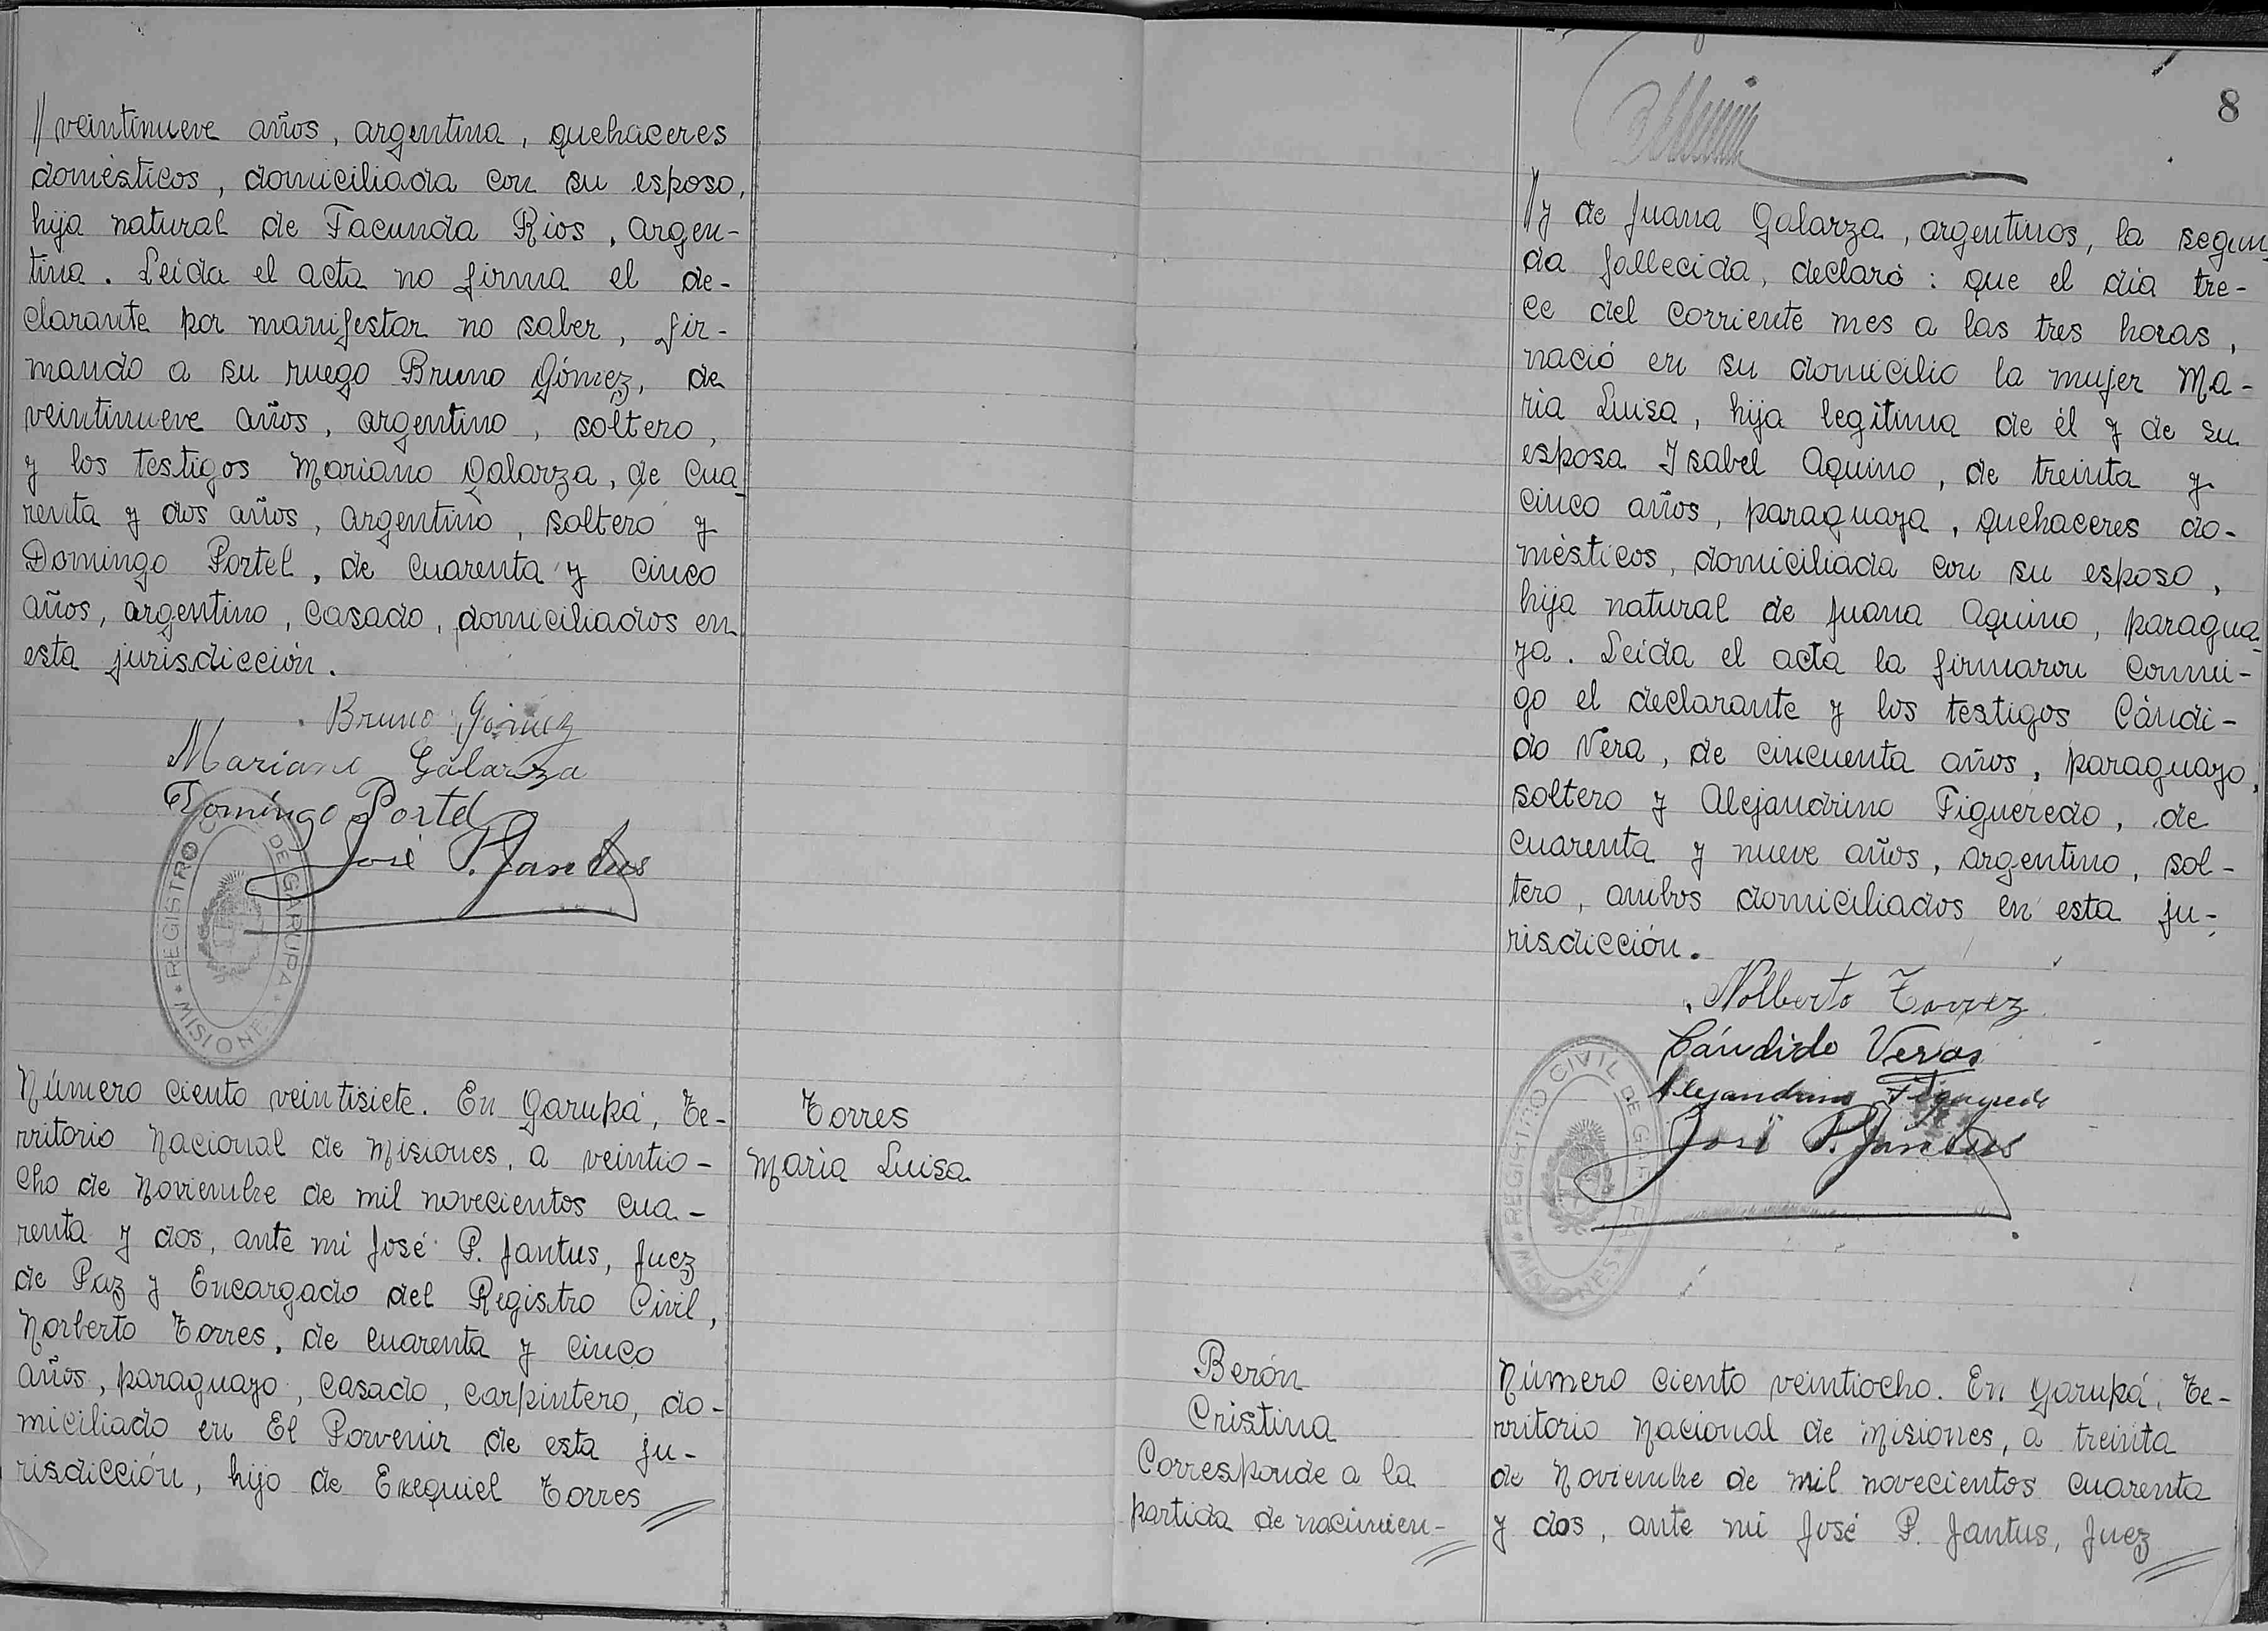 // veintinueve años, argentina, quehaceres
domésticos, domiciliada con su esposo,
hija natural de Facunda Rios, argen-
tina. Leida el acta no firma el de-
clarante por manifestar no saber, fir-
mando a su ruego Bruno Gómez, de
veintinueve años, argentino, soltero,
y los testigos Mariano Galarza, de cua-
renta y dos años, argentino, soltero y
Domingo Portel, de cuarenta y cinco
años, argentino, casado, domiciliados en
esta jurisdicción.
Bruno Gómez
Mariano Galarza
Domingo Portel
José P. Jantus
REGISTRO DE GARUPA MISIONES
Número ciento veintisiete. En Garupá, Te-
rritorio Nacional de Misiones, a veintio-
cho de Noviembre de mil novecientos cua-
renta y dos, ante mi José P. Jantus, Juez
de Paz y Encargado del Registro Civil,
Norberto Torres, de cuarenta y cinco
años, paraguayo, casado, carpintero, do-
miciliado en El Porvenir de esta ju-
risdicción, hijo de Exequiel Torres //
Torres
Maria Luisa
8
// y de Juana Galarza, argentinos, la segun-
da fallecida, declaró: que el día tre-
ce del corriente mes a las tres horas,
nació en su domicilio la mujer Ma-
ria Luisa, hija legitima de él y de su
esposa Isabel Aquino, de treinta y
cinco años, paraguaya, quehaceres do-
mésticos, domiciliada con su esposo,
hija natural de Juana Aquino, paragua-
ya. Leida el acta la firmaron conmi-
go el declarante y los testigos Cándi-
do Vera, de cincuenta años, paraguayo,
soltero y Alejandrino Figueredo, de
cuarenta y nueve años, argentino, sol-
tero, ambos domiciliados en esta ju-
risdicción.
Nolberto Torrez
Cándido Veras
Alejandrino Figueredo
José P. Jantus
REGISTRO CIVIL DE GARUPA MISIONES
Berón
Cristina
Corresponde a la
partida de nacimien- //
Número ciento veintiocho. En Garupá, Te-
rritorio Nacional de Misiones, a treinta
de Noviembre de mil novecientos cuarenta
y dos, ante mi José P. Jantus, Juez //